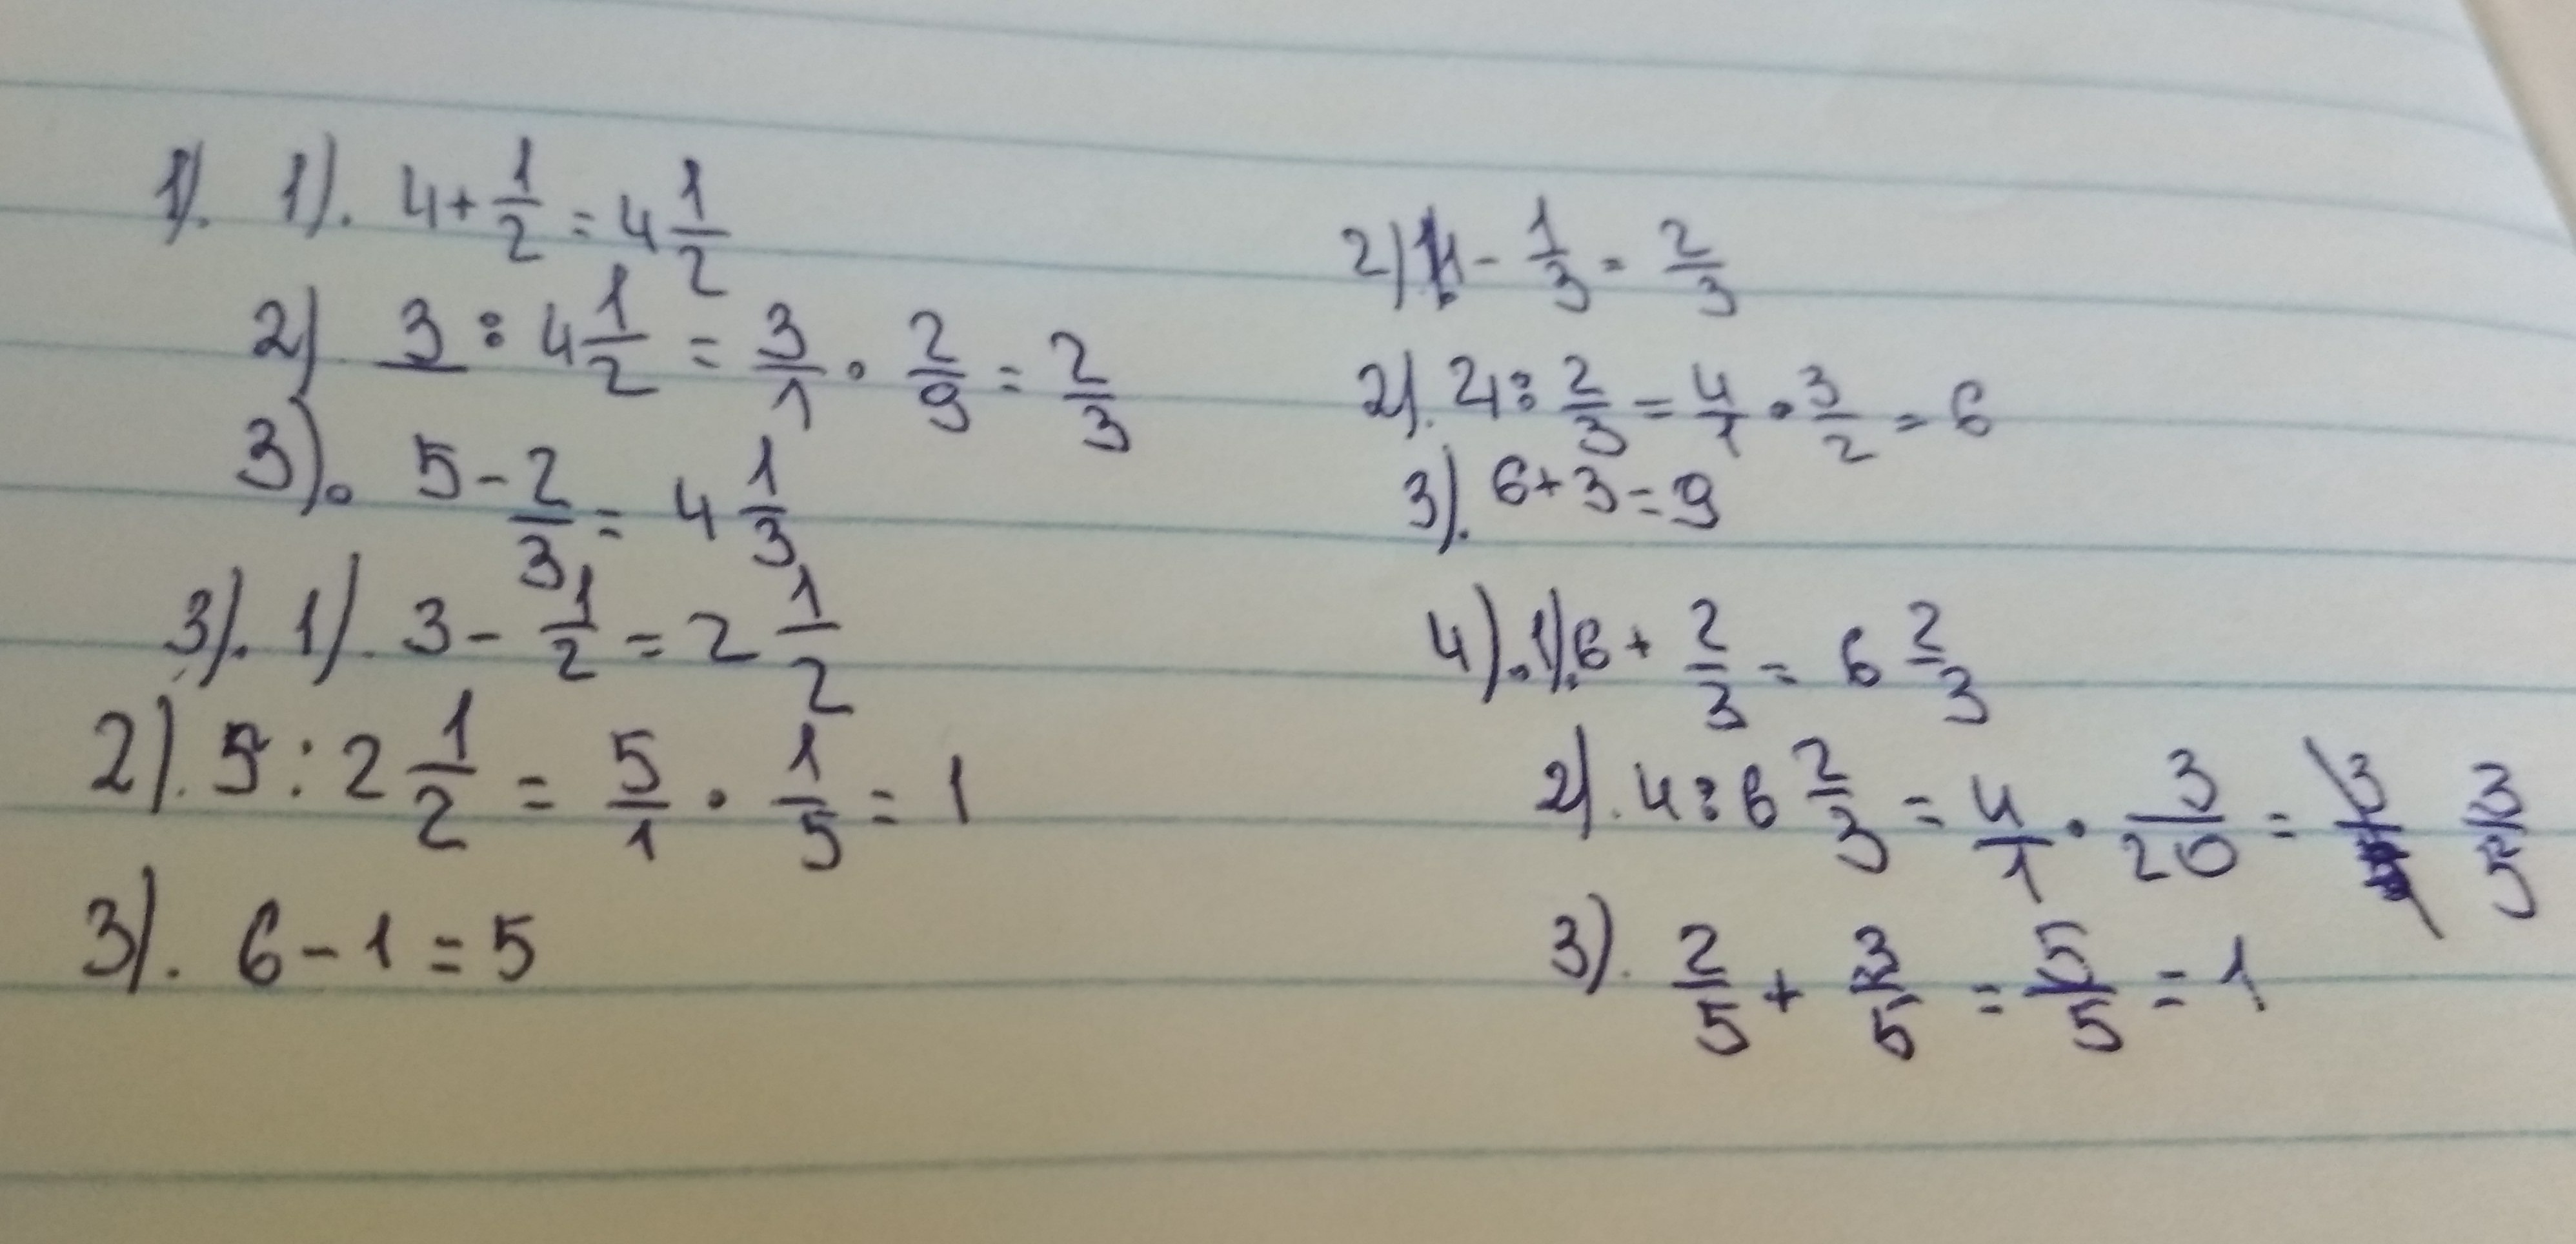 1). 1). 4+1/2=4 1/2
2) 3:4 1/2=3/1·2/9=2/3
3). 5-2/3=4 1/3
3). 1). 3-1/2=2 1/2
2). 5:2 1/2=5/1·1/5=1
3). 6-1=5
2) 1-1/3=2/3
2). 4:2/3=4/1·3/2=6
3). 6+3=9
4). 1). 6+2/3=6 2/3
2). 4:6 2/3=4/1·3/20=3/5
3). 2/5+3/5=5/5=1